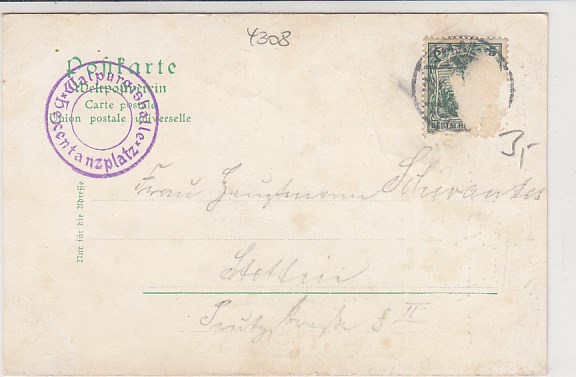 4308
Postkarte
Weltpostverein
Carte postale
Union postale universelle
Walpurgishalle
Hexentanzplatz
5 5
DEUTSCHE
3,-
Frau Hauptmann Schwantes
Nur für die Adresse
Stettin
straße 8 II